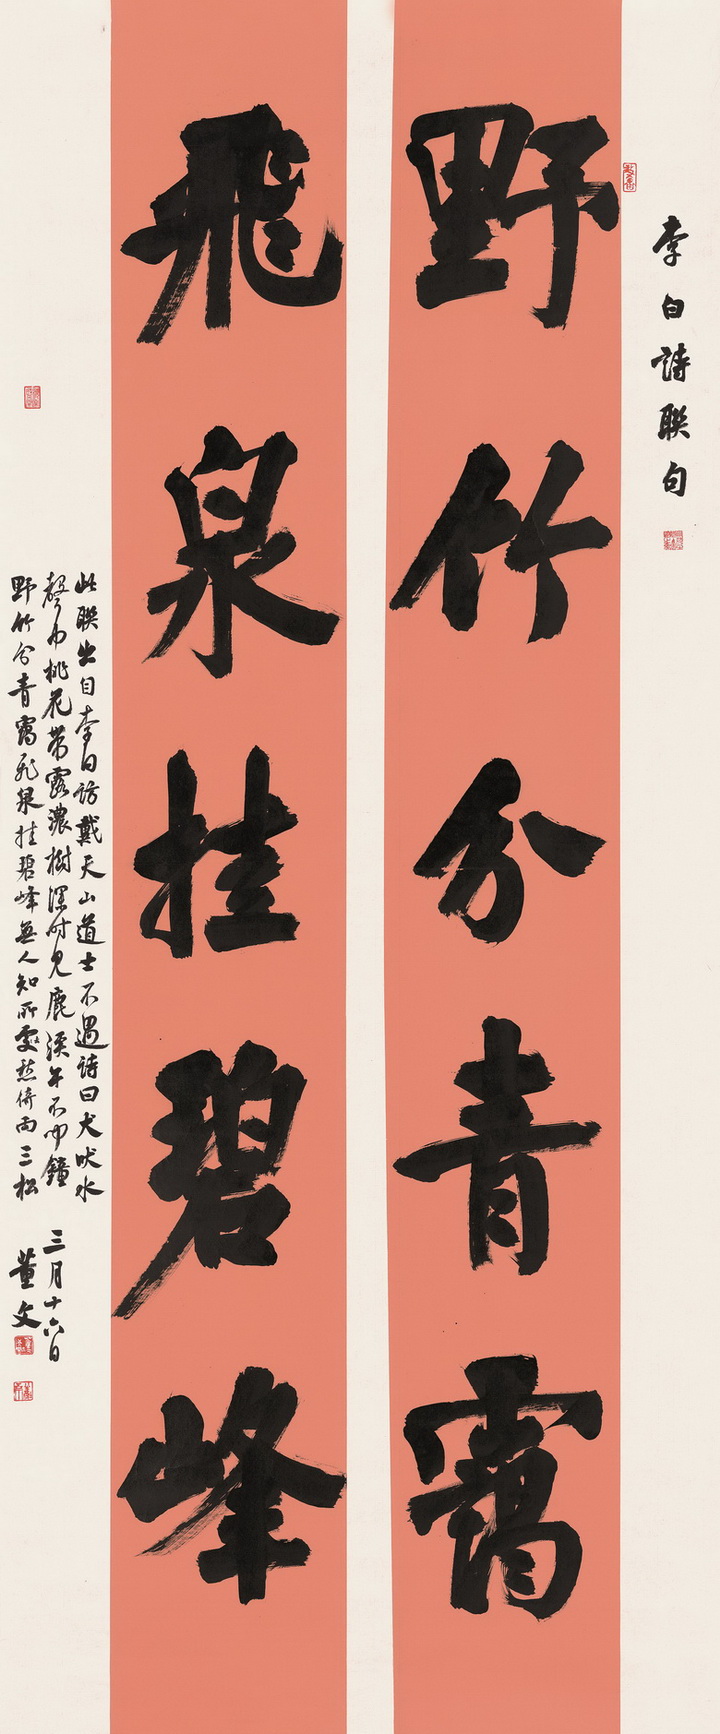 李白詩聯句
野竹分青靄
飛泉挂碧峰
此聯出自李白訪戴天山道士不遇詩曰犬吠水
聲中桃花帶露濃樹深時見鹿溪午不聞鐘
野竹分青靄飛泉挂碧峰無人知所處愁倚兩三松
三月十六日
董文